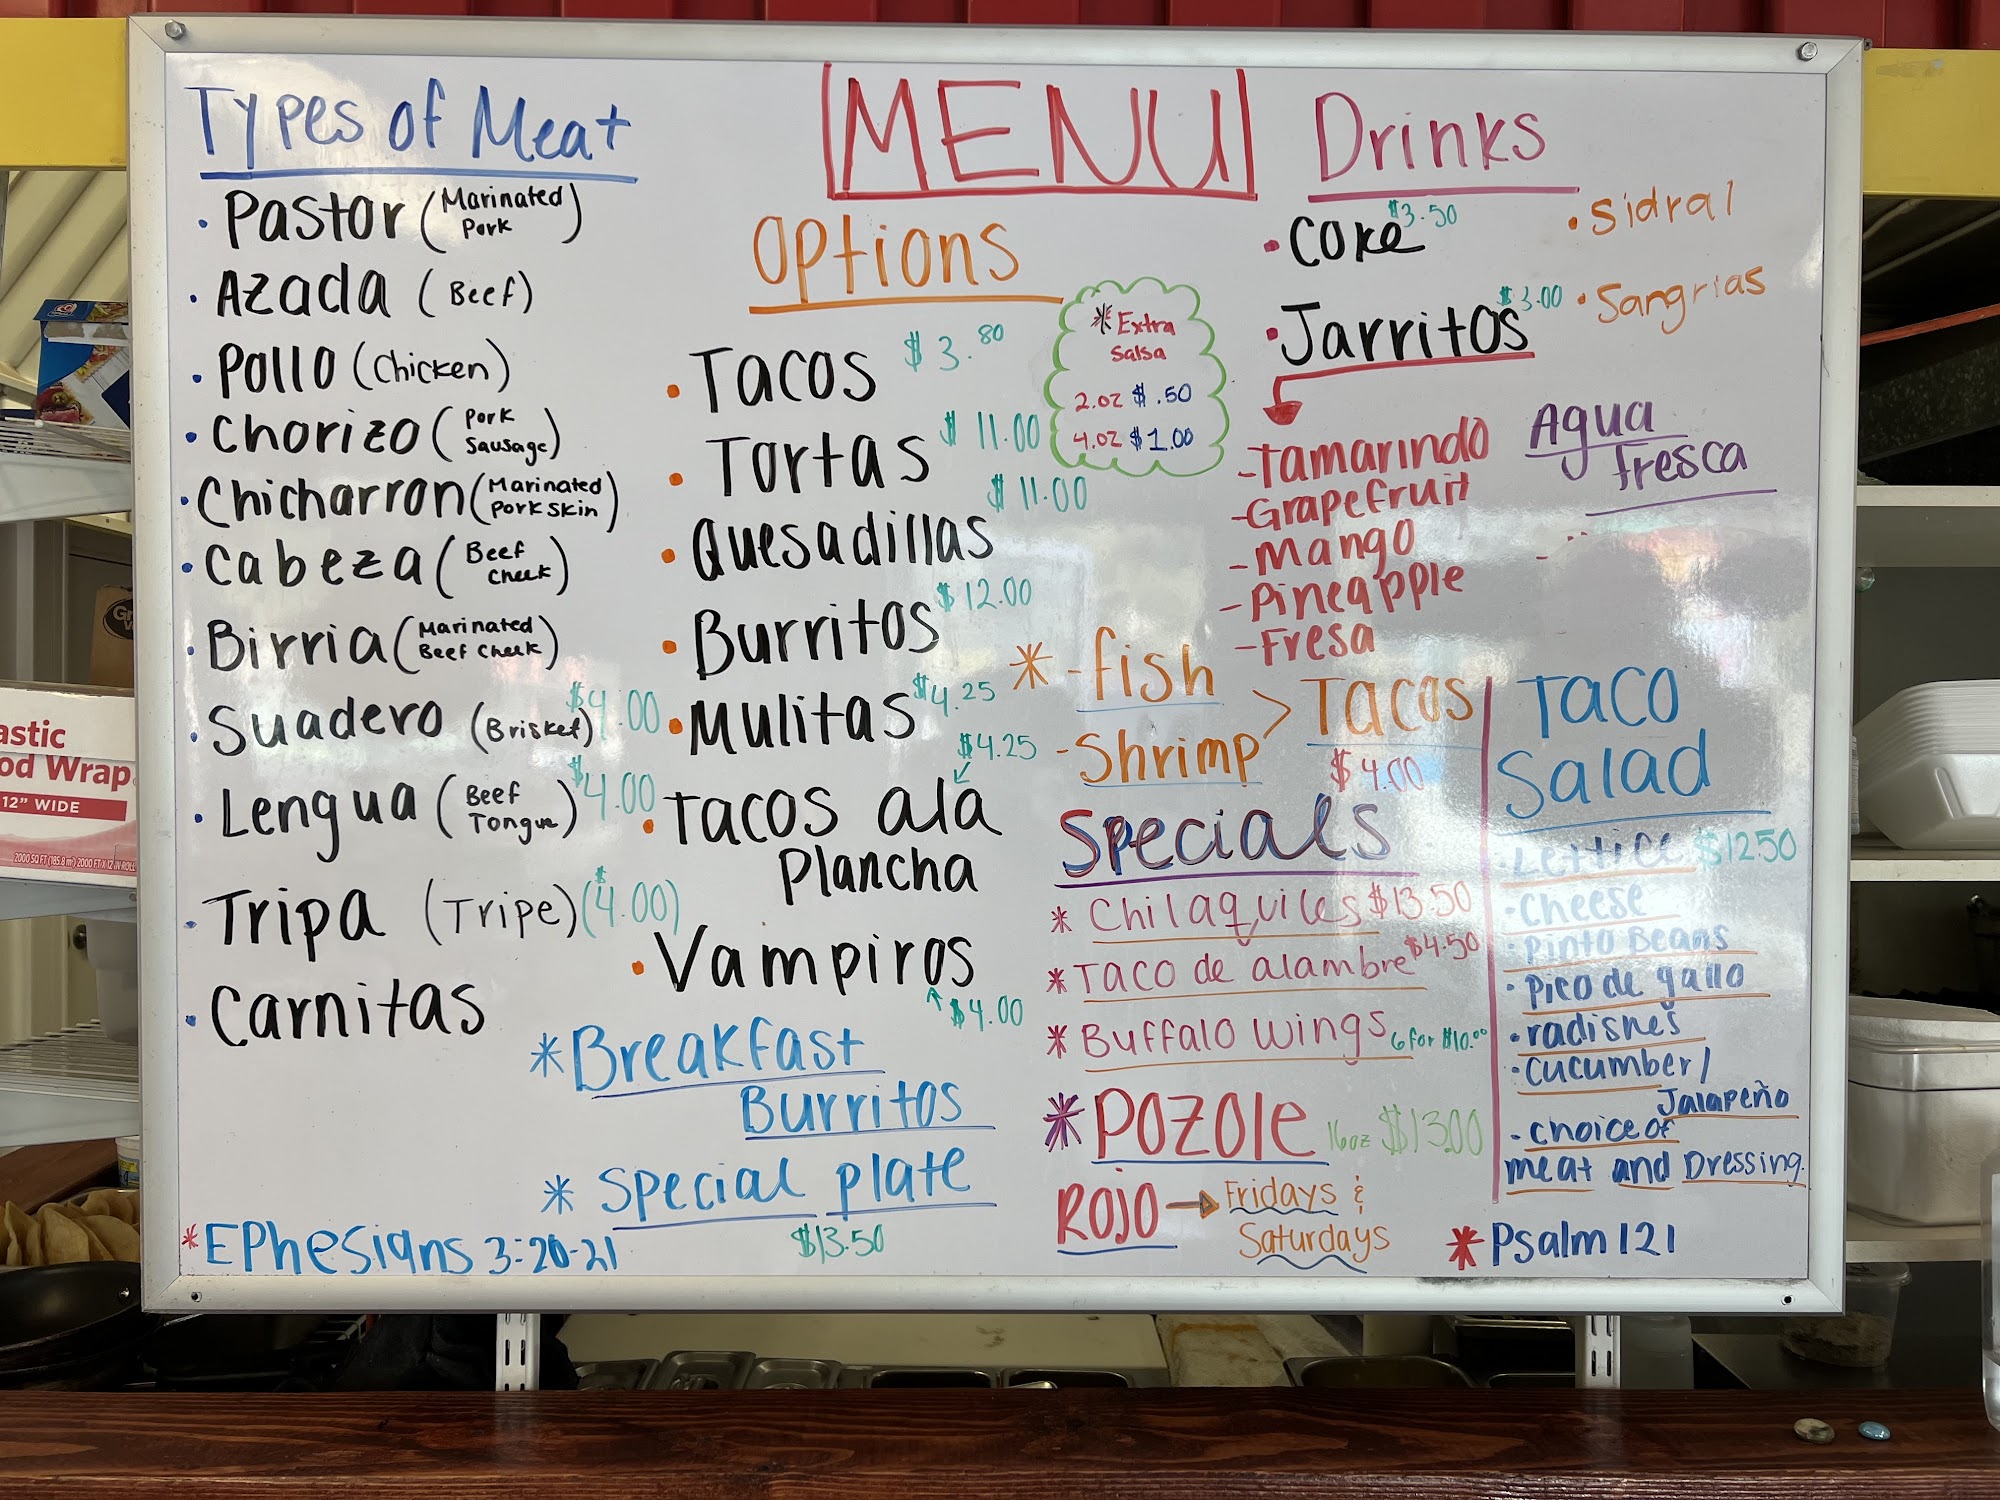 MENU
Types of Meat
• Pastor (Marinated Pork)
• Azada (Beef)
• Pollo (Chicken)
• Chorizo (Pork Sausage)
• Chicharron (Marinated Pork skin)
• Cabeza (Beef Cheek)
• Birria (Marinated Beef Cheek)
• Suadero (Brisket) $4.00
• Lengua (Beef Tongue) $4.00
• Tripa (Tripe) ($4.00)
• Carnitas
*Ephesians 3:20-21
Options
• Tacos $3.80
• Tortas $11.00
• Quesadillas $11.00
• Burritos $12.00
• Mulitas $4.25
• Tacos ala $4.25
Plancha
• Vampiros
$4.00
*Breakfast
Burritos
* Special plate
$13.50
* Extra
Salsa
2.oz $.50
4.oz $1.00
Drinks
• Coke $3.50
• Jarritos $3.00
-Tamarindo
-Grapefruit
-Mango
-Pineapple
-Fresa
• Sidral
• Sangrias
Agua
fresca
* -fish
-Shrimp > Tacos
$4.00
Specials
* Chilaquiles $13.50
* Taco de alambre $4.50
* Buffalo wings 6 for $10.00
* Pozole 16oz $13.00
Rojo → Fridays &
Saturdays
Taco
Salad
• Lettice $12.50
• Cheese
• Pinto Beans
• Pico de gallo
• radishes
• cucumber/
Jalapeño
- choice of
meat and Dressing.
* Psalm 121
astic
od Wrap
12" WIDE
2000 SQ FT (185.8 m²) 2000 FT X 12 IN ROLL